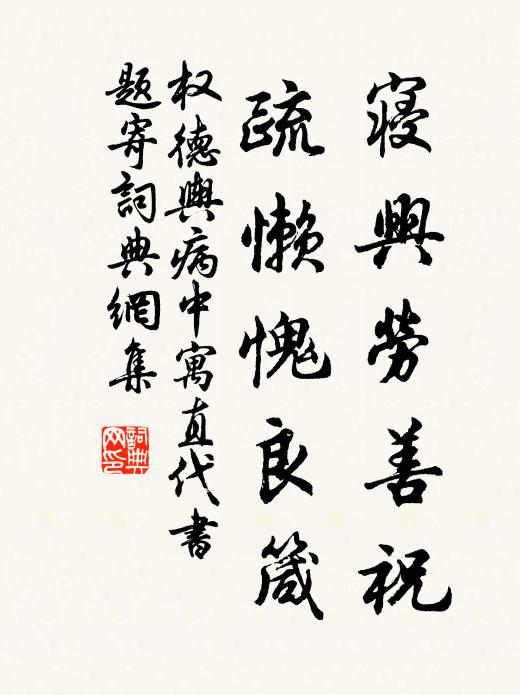 寝興勞善祝
疏懶愧良箴
权德輿病中寓直代書
題寄詞典網集
詞典
网印